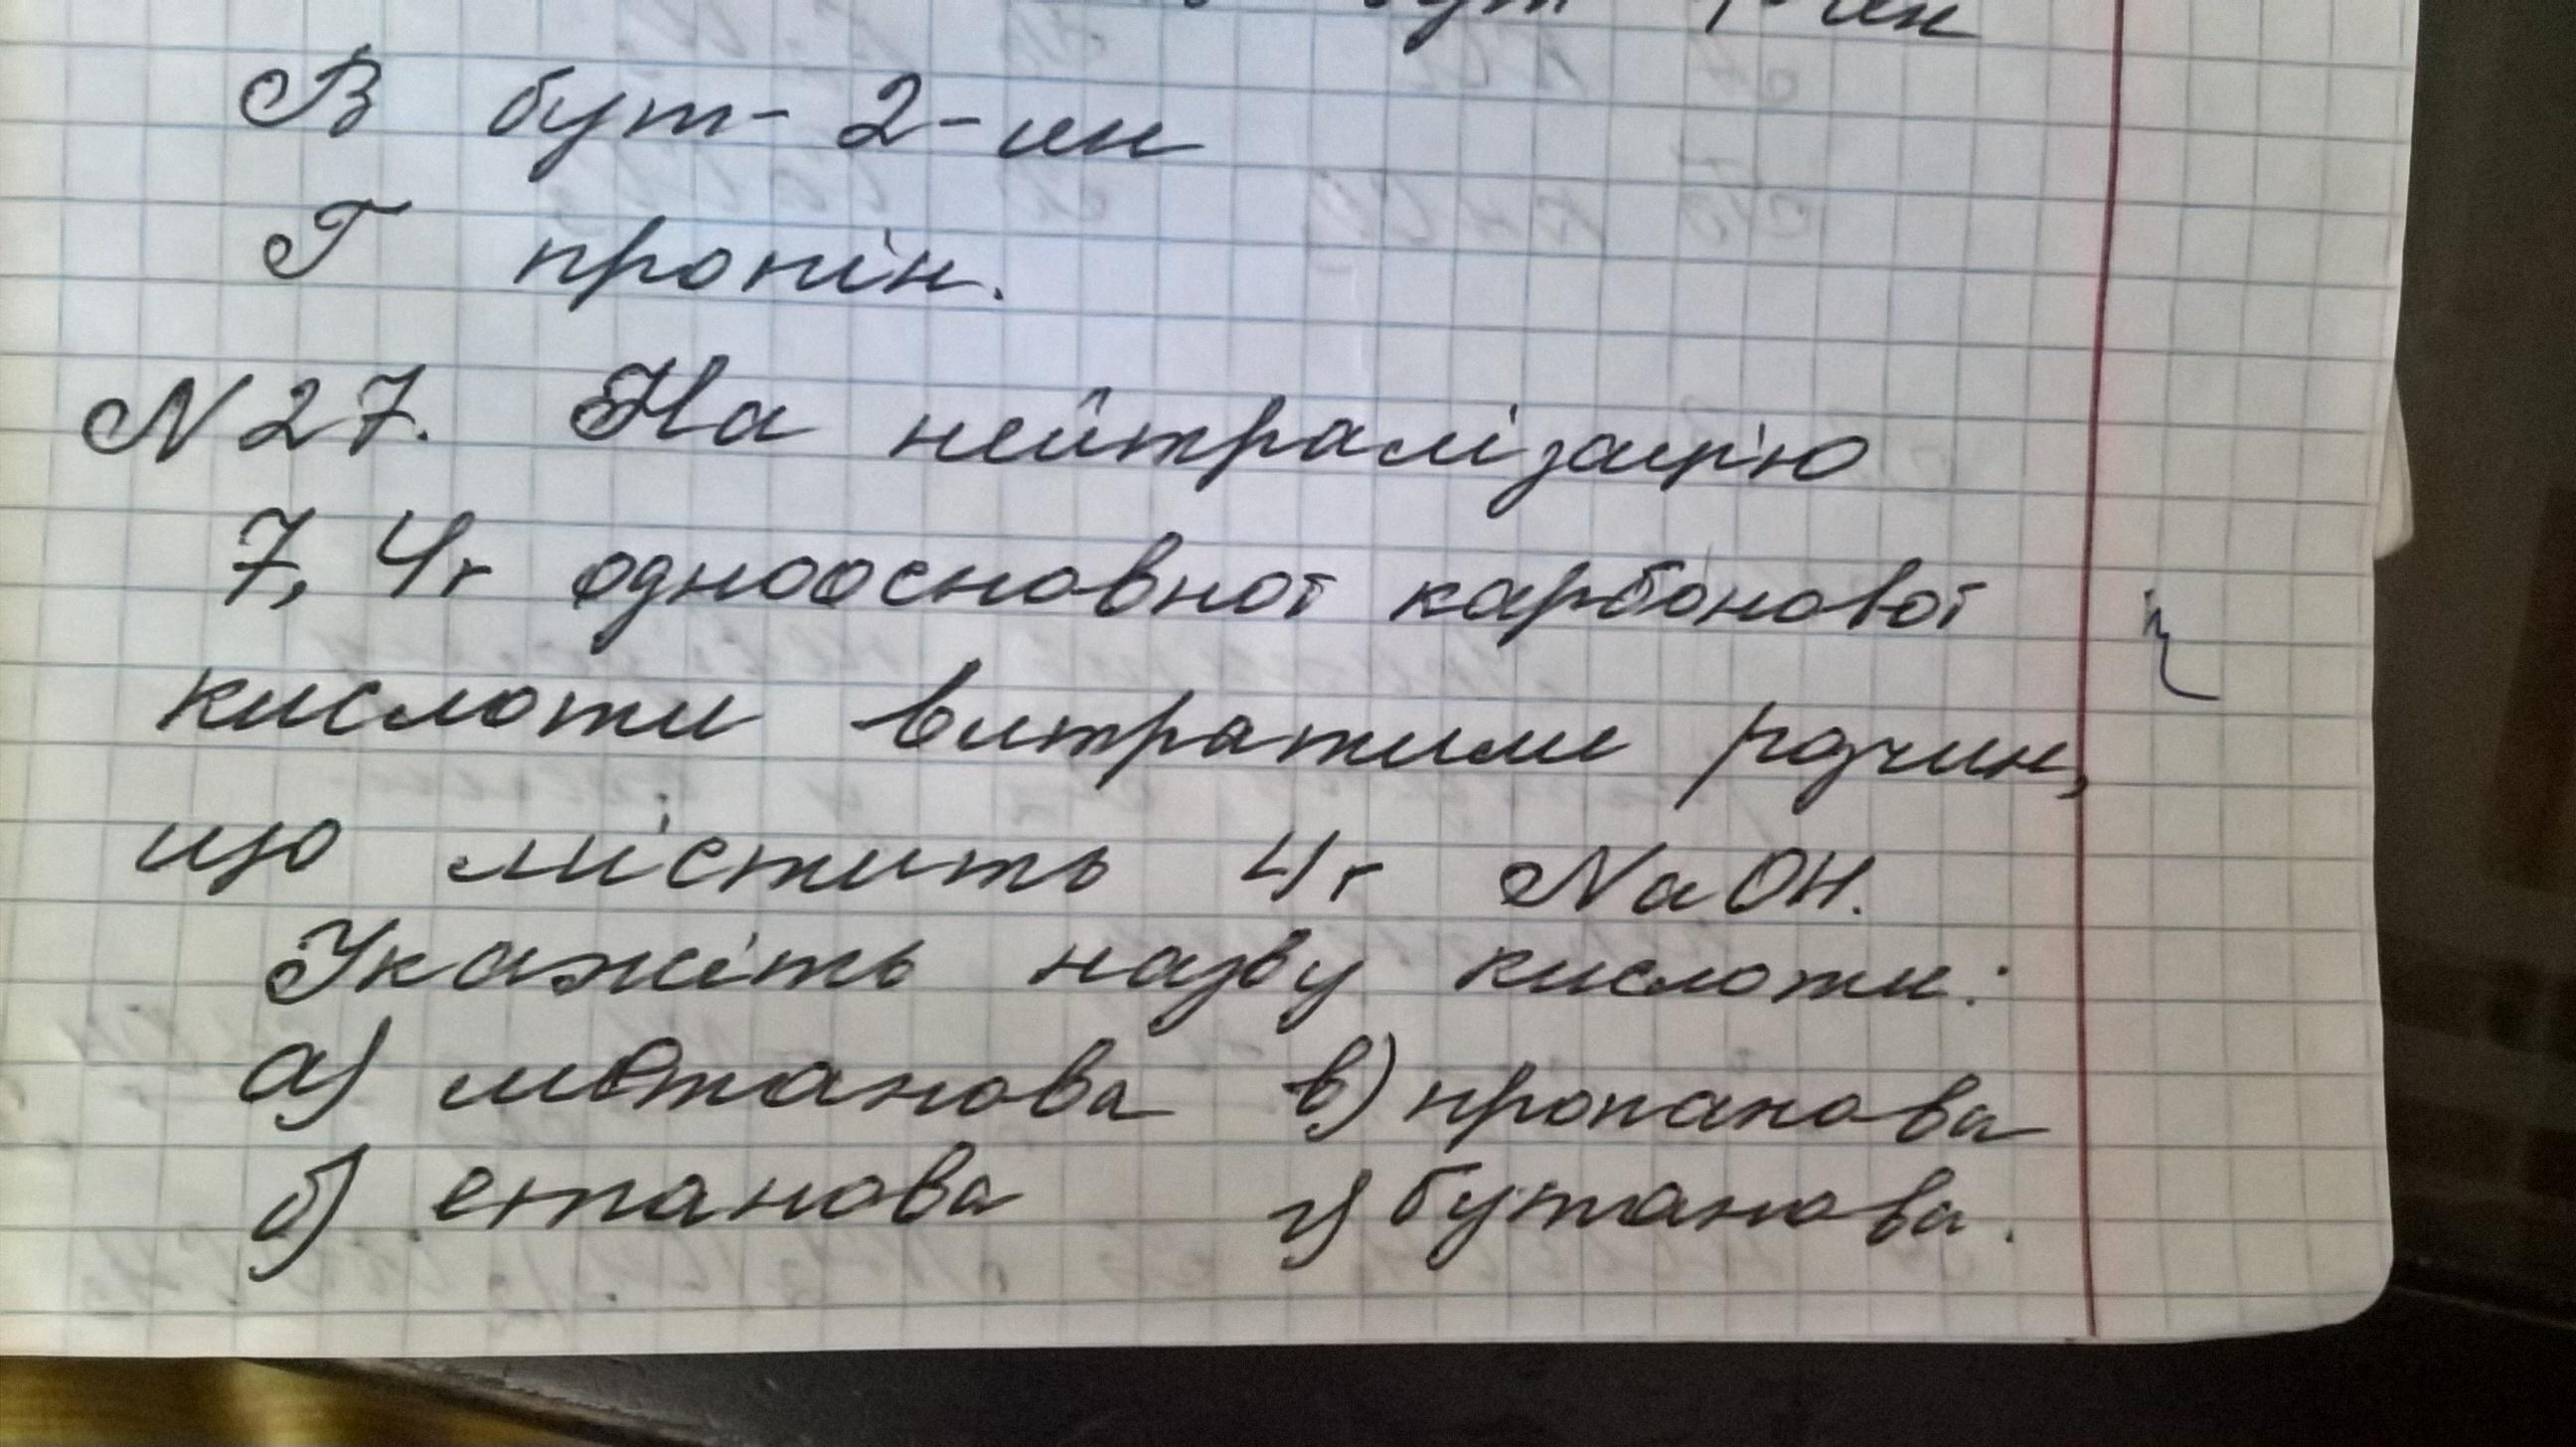 В бут-2-ин
Г пропін.
N27. На нейтралізацію
7,4г одноосновної карбонової
кислоти витратили розчин,
що містить 4г NaOH.
Укажіть назву кислоти:
а) метанова в) пропанова
б) етанова г) бутанова.